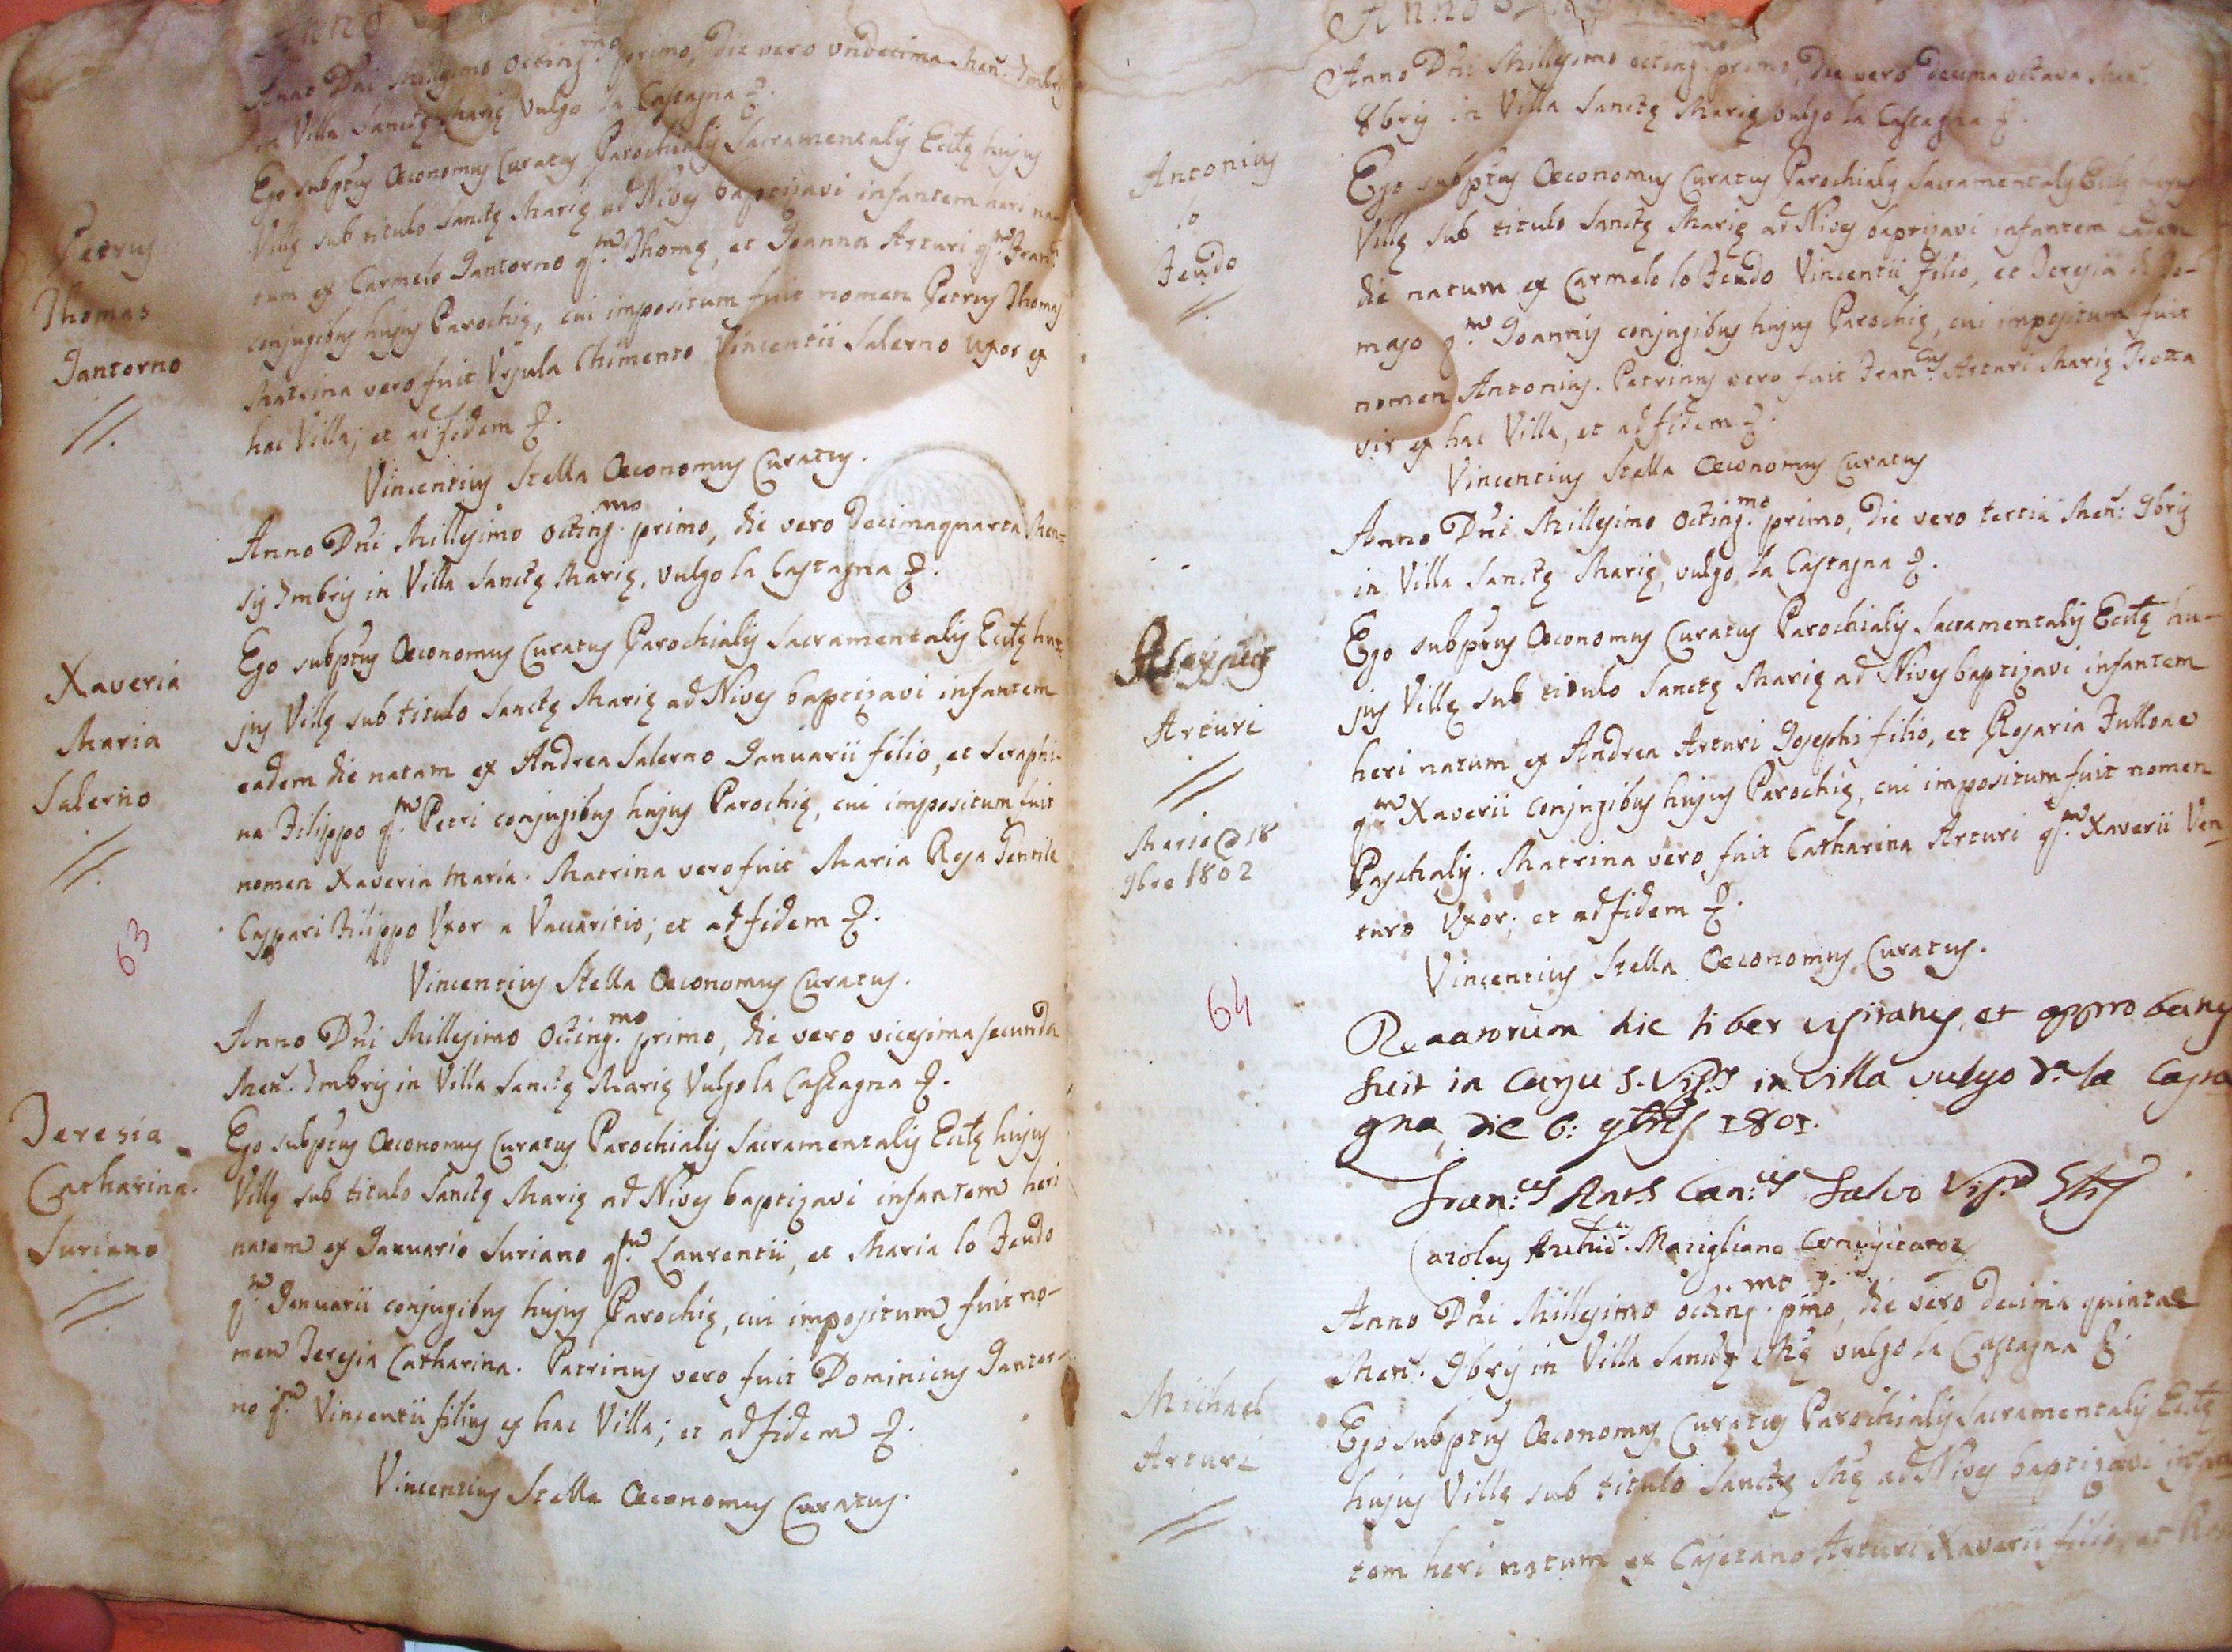 Anno
Anno Dñi Millesimo octing.mo primo, die vero undecima Meñ. 7mbris
in Villa Sanctę Marię vulgo la Castagna &.
Ego subptus Œconomus Curatus Parochialis Sacramentalis Ecclę hujus
Villę sub titulo Sanctę Marię ad Nives baptizavi infantem heri na-
tum ex Carmelo Jantorno qm. Thomę, et Joanna Arturi qm. Franci
conjugibus hujus Parochię, cui impositum fuit nomen Petrus Thomas.
Matrina vero fuit Ursula Chimento Vincentii Salerno Uxor ex
hac Villa; et ad fidem &.
Vincentius Stella Œconomus Curatus.
Petrus
Thomas
Jantorno
//.
Anno Dñi Millesimo octing.mo primo, die vero Decimaquarta Men=
sis 7mbris in Villa Sanctę Marię, vulgo la Castagna &.
Ego subptus Œconomus Curatus Parochialis Sacramentalis Ecclę hu=
jus Villę sub titulo Sanctę Marię ad Nives baptizavi infantem
eadem die natam ex Andrea Salerno Januarii filio, et Seraphi-
na Filippo qm. Petri conjugibus hujus Parochię, cui impositum fuit
nomen Xaveria Maria. Matrina vero fuit Maria Rosa Gentile
Caspari Filippo Uxor a Vaccaritio; et ad fidem &.
Vincentius Stella Œconomus Curatus.
Xaveria
Maria
Salerno
//.
63
Anno Dñi Millesimo octing.mo primo, die vero vicesima secunda
Meñ. 7mbris in Villa Sanctę Marię vulgo la Castagna &.
Ego subptus Œconomus Curatus Parochialis Sacramentalis Ecclę hujus
Villę sub titulo Sanctę Marię ad Nives baptizavi infantem heri
natam ex Januario Suriano qm. Laurentii, et Maria lo Feudo
qm. Januarii conjugibus hujus Parochię, cui impositum fuit no-
men Teresia Catharina. Patrinus vero fuit Dominicus Jantor-
no qm. Vincentii filius ex hac Villa; et ad fidem &.
Vincentius Stella Œconomus Curatus.
Teresia
Catharina
Suriano
//
Anno
Anno Dñi Millesimo octing.mo primo, die vero decima octava Meñ.
8bris in Villa Sanctę Marię vulgo la Castagna &.
Ego subptus Œconomus Curatus Parochialis Sacramentalis Ecclę hujus
Villę sub titulo Sanctę Marię ad Nives baptizavi infantem eadem
die natum ex Carmelo lo Feudo Vincentii filio, et Teresia di To-
maso qm. Joannis conjugibus hujus Parochię, cui impositum fuit
nomen Antonius. Patrinus vero fuit Fran.cus Arturi Marię Trotta
vir ex hac Villa, et ad fidem &.
Vincentius Stella Œconomus Curatus
Antonius
lo
Feudo
//.
Anno Dñi Millesimo octing.mo primo, die vero tertia Meñ: 9bris
in Villa Sanctę Marię, vulgo la Castagna &.
Ego subptus Œconomus Curatus Parochialis Sacramentalis Ecclę hu-
jus Villę sub titulo Sanctę Marię ad Nives baptizavi infantem
heri natum ex Andrea Arturi Josephi filio, et Rosaria Fullone
qm. Xaverii conjugibus hujus Parochię, cui impositum fuit nomen
Paschalis. Matrina vero fuit Catharina Arturi qm. Xaverii Ven
turo Uxor; et ad fidem &.
Vincentius Stella Œconomus Curatus.
Arturi
//
18
9bre 1802
64
hic liber visitatus, et approbatus
fuit in Cursu S. Vis.s in Villa vulgo da. la Casta
gna, die 6: 9bris 1801.
Fran.cus Ant.s Can.cus Salvo Vis.r
Carolus Archid. Marigliano Convisitator
Anno Dñi Millesimo octing.mo pmo, die vero Decima quinta
Meñ. 9bris in Villa Sanctę Mę vulgo la Castagna &.
Ego subptus Œconomus Curatus Parochialis Sacramentalis Ecclę
hujus Villę sub titulo Sanctę Mę ad Nives baptizavi infan
tem heri natum ex Cajetano Arturi Xaverii filio, et
Michael
Arturi
//